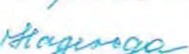 Надежда